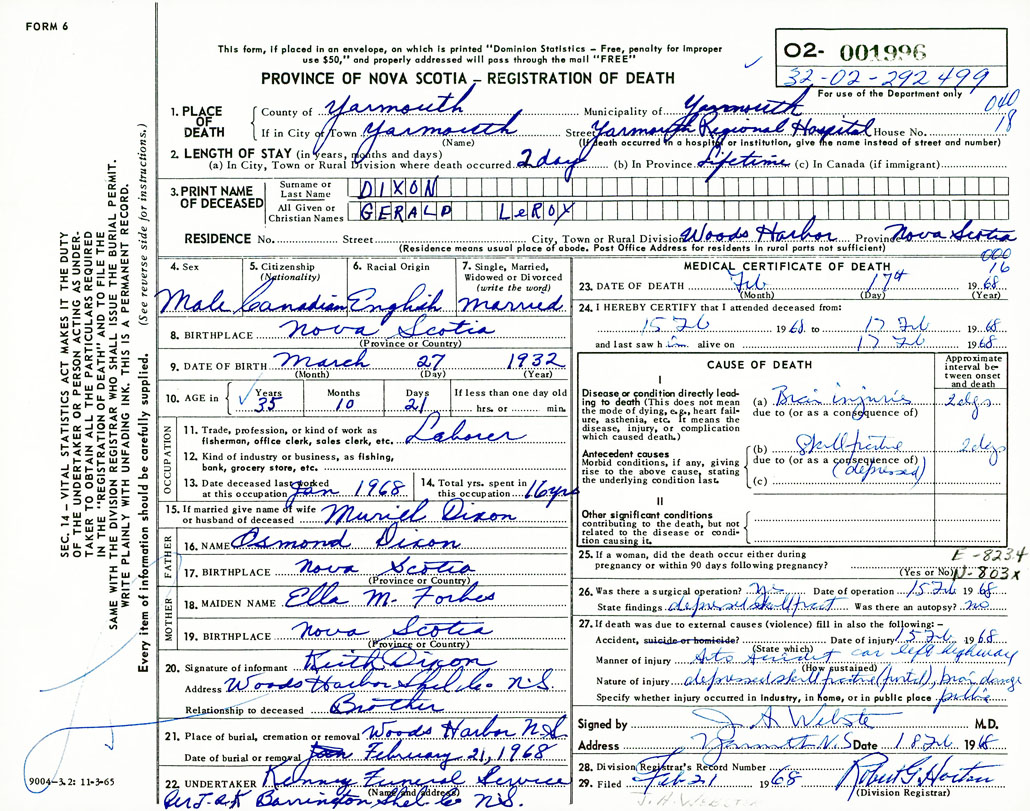 FORM 6
This form, if placed in an envelope, on which is printed "Dominion Statistics – Free, penalty for improper
use $50," and properly addressed will pass through the mail "FREE"
PROVINCE OF NOVA SCOTIA – REGISTRATION OF DEATH
02- 001996
32-02-292499
For use of the Department only
040
18
1. PLACE OF DEATH County of Yarmouth Municipality of Yarmouth
If in City of Town Yarmouth Street Yarmouth Regional Hospital House No.
(Name) (If death occurred in a hospital or institution, give the name instead of street and number)
2. LENGTH OF STAY (in years, months and days)
(a) In City, Town or Rural Division where death occurred 2 day (b) In Province Lifetime (c) In Canada (if immigrant)
3. PRINT NAME OF DECEASED Surname or Last Name DIXON
All Given or Christian Names GERALD LeROY
RESIDENCE No. Street City, Town or Rural Division Woods Harbor Province Nova Scotia
(Residence means usual place of abode. Post Office Address for residents in rural parts not sufficient)
000
16
4. Sex 5. Citizenship (Nationality) 6. Racial Origin 7. Single, Married, Widowed or Divorced (write the word)
Male Canadian English married
8. BIRTHPLACE Nova Scotia
(Province or Country)
9. DATE OF BIRTH March 27 1932
(Month) (Day) (Year)
10. AGE in Years Months Days If less than one day old
35 10 21 hrs. or min.
OCCUPATION
11. Trade, profession, or kind of work as
fisherman, office clerk, sales clerk, etc. Laborer
12. Kind of industry or business, as fishing,
bank, grocery store, etc.
13. Date deceased last worked at this occupation Jan 1968 14. Total yrs. spent in this occupation 16 yrs
15. If married give name of wife
or husband of deceased Muriel Dixon
FATHER
16. NAME Osmond Dixon
17. BIRTHPLACE Nova Scotia
(Province or Country)
MOTHER
18. MAIDEN NAME Ella M. Forbes
19. BIRTHPLACE Nova Scotia
(Province or Country)
20. Signature of informant Keith Dixon
Address Woods Harbor Shel Co N.S.
Relationship to deceased Brother
21. Place of burial, cremation or removal Woods Harbor N.S.
Date of burial or removal February 21, 1968
22. UNDERTAKER Kenney Funeral Service
(Name and address)
Per J. a K Barrington Shel. Co N.S.
MEDICAL CERTIFICATE OF DEATH
23. DATE OF DEATH Feb 17th 1968
(Month) (Day) (Year)
24. I HEREBY CERTIFY that I attended deceased from:
15 Feb 1968 to 17 Feb 1968
and last saw him alive on 17 Feb 1968
CAUSE OF DEATH
Approximate interval between onset and death
I
Disease or condition directly leading to death (This does not mean the mode of dying, e.g., heart failure, asthenia, etc. It means the disease, injury, or complication which caused death.)
(a) Brain injuries 2 dys
due to (or as a consequence of)
Antecedent causes
Morbid conditions, if any, giving rise to the above cause, stating the underlying condition last.
(b) Skull fracture 2 dys
due to (or as a consequence of)
(depressed)
(c)
II
Other significant conditions
contributing to the death, but not related to the disease or condition causing it.
25. If a woman, did the death occur either during
pregnancy or within 90 days following pregnancy?
(Yes or No)
E-823.4
N-803x
26. Was there a surgical operation? Yes Date of operation 15 Feb 1968
State findings depressed skull fract Was there an autopsy? no
27. If death was due to external causes (violence) fill in also the following: –
Accident, suicide or homicide? Date of injury 15 Feb 1968
(State which)
Manner of injury Auto accident car left highway
(How sustained)
Nature of injury depressed skull fracture (frontal), brain damage
Specify whether injury occurred in Industry, in home, or in public place public
Signed by J. A. Webster M.D.
Address Yarmouth N.S. Date 18 Feb 1968
28. Division Registrar's Record Number
29. Filed Feb 21 1968 Robert G. Horton
(Division Registrar)
J. A. WEBSTER
SEC. 14 – VITAL STATISTICS ACT MAKES IT THE DUTY
OF THE UNDERTAKER OR PERSON ACTING AS UNDER-
TAKER TO OBTAIN ALL THE PARTICULARS REQUIRED
IN THE "REGISTRATION OF DEATH" AND TO FILE THE
SAME WITH THE DIVISION REGISTRAR WHO SHALL ISSUE THE BURIAL PERMIT.
WRITE PLAINLY WITH UNFADING INK. THIS IS A PERMANENT RECORD.
Every item of information should be carefully supplied. (See reverse side for instructions.)
9004-3.2: 11-3-65